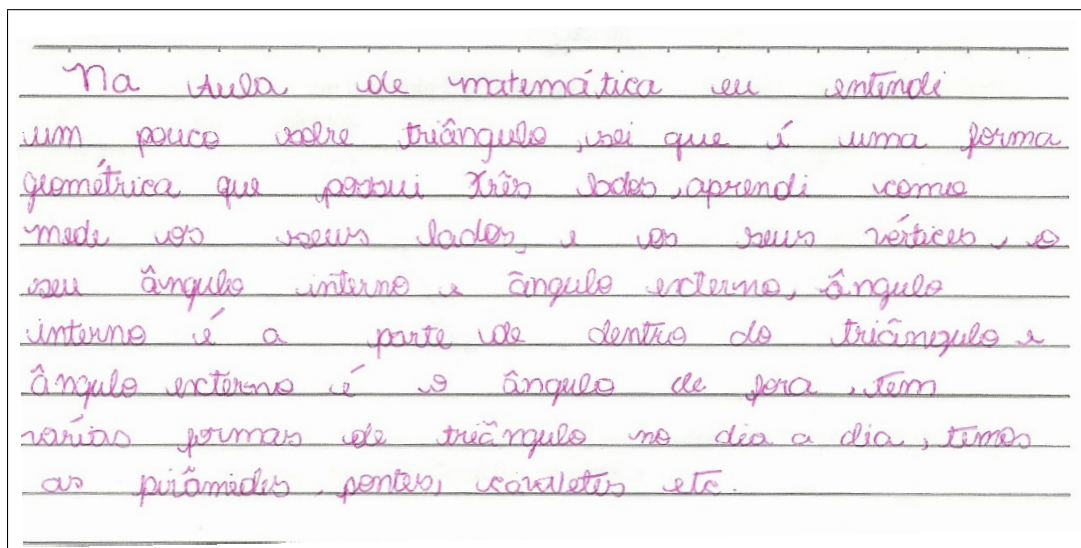 Na Aula de matemática eu entendi
um pouco sobre triângulo, sei que é uma forma
geométrica que possui três lados, aprendi como
mede os seus lados, e os seus vértices, o
seu ângulo interno e ângulo externo, ângulo
interno é a parte de dentro do triângulo e
ângulo externo é o ângulo de fora, tem
varias formas de triângulo no dia a dia, temos
as pirâmides, pontes, cavaletes etc.